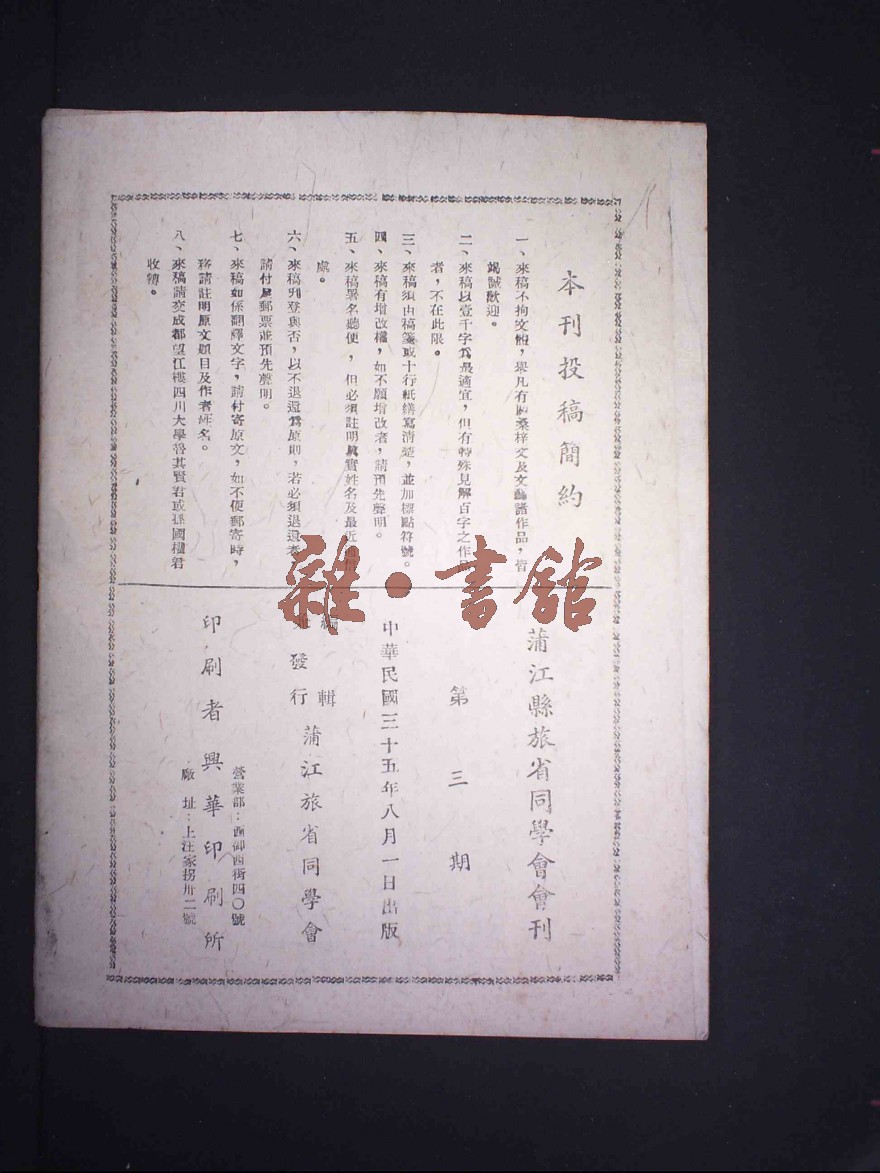 本刊投稿簡約
一、來稿不拘文體，舉凡有關桑梓文及文藝諸作品，皆
竭誠歡迎。
二、來稿以壹千字爲最適宜，但有特殊見解百字之作
者，不在此限。
三、來稿須由稿箋或十行紙繕寫清楚，並加標點符號。
四、來稿有增改權，如不願增改者，請預先聲明。
五、來稿署名聽便，但必須註明眞實姓名及最近
處。
六、來稿刋登與否，以不退還爲原則，若必須退還者
請付足郵票並預先聲明。
七、來稿如係翻釋文字，請付寄原文，如不便郵寄時，
務請註明原文題目及作者姓名。
八、來稿請交成都望江樓四川大學 其賢君或孫國權君
收轉。
蒲江縣旅省同學會會刊
第三期
中華民國三十五年八月一日出版
編輯
發行
蒲江旅省同學會
印刷者興華印刷所
營業部：西御西街四〇號
廠址：上汪家拐卅二號
雜·書館